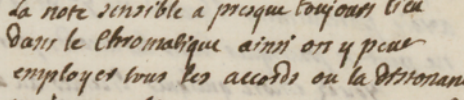 La note sensible a presque toujours lieu
Dans le Chromatique ainsi on y peut
employer tous les accords ou la dissonan